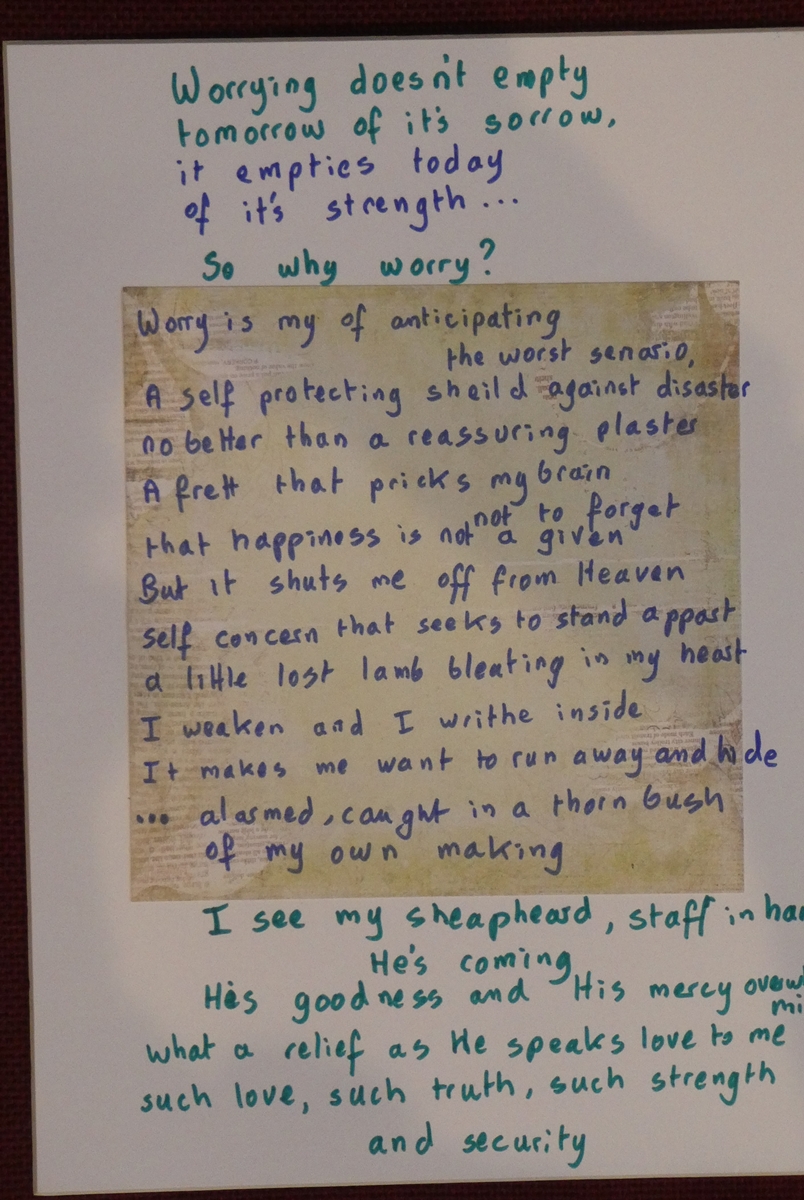 Worrying doesn't empty
tomorrow of it's sorrow,
it empties today
of it's strength...
So why worry?
Worry is my of anticipating
the worst senario,
A self protecting sheild against disaster
no better than a reassuring plaster
A frett that pricks my brain
not to forget
that happiness is not a given
But it shuts me off from Heaven
self concern that seeks to stand appart
a little lost lamb bleating in my heart
I weaken and I writhe inside
It makes me want to run away and hide
... alarmed, caught in a thorn bush
of my own making
I see my sheapheard, staff in
He's coming
His goodness and His mercy
what a relief as He speaks love to me
such love, such truth, such strength
and security